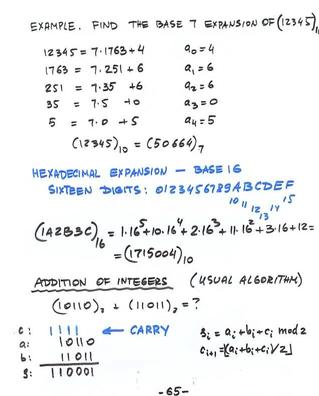 EXAMPLE. FIND THE BASE 7 EXPANSION OF (12345)₁
12345 = 7·1763 + 4 a₀ = 4
1763 = 7·251 + 6 a₁ = 6
251 = 7·35 + 6 a₂ = 6
35 = 7·5 + 0 a₃ = 0
5 = 7·0 + 5 a₄ = 5
(12345)₁₀ = (50664)₇
HEXADECIMAL EXPANSION – BASE 16
SIXTEEN DIGITS: 0123456789ABCDEF
10 11 12 13 14 15
(1A2B3C)₁₆ = 1·16⁵ + 10·16⁴ + 2·16³ + 11·16² + 3·16 + 12 =
= (1715004)₁₀
ADDITION OF INTEGERS (USUAL ALGORITHM)
(10110)₂ + (11011)₂ = ?
c: 1111 ← CARRY sᵢ = aᵢ + bᵢ + cᵢ mod 2
a: 10110 cᵢ₊₁ = ⌊(aᵢ + bᵢ + cᵢ)/2⌋
b: 11011
s: 110001
-65-